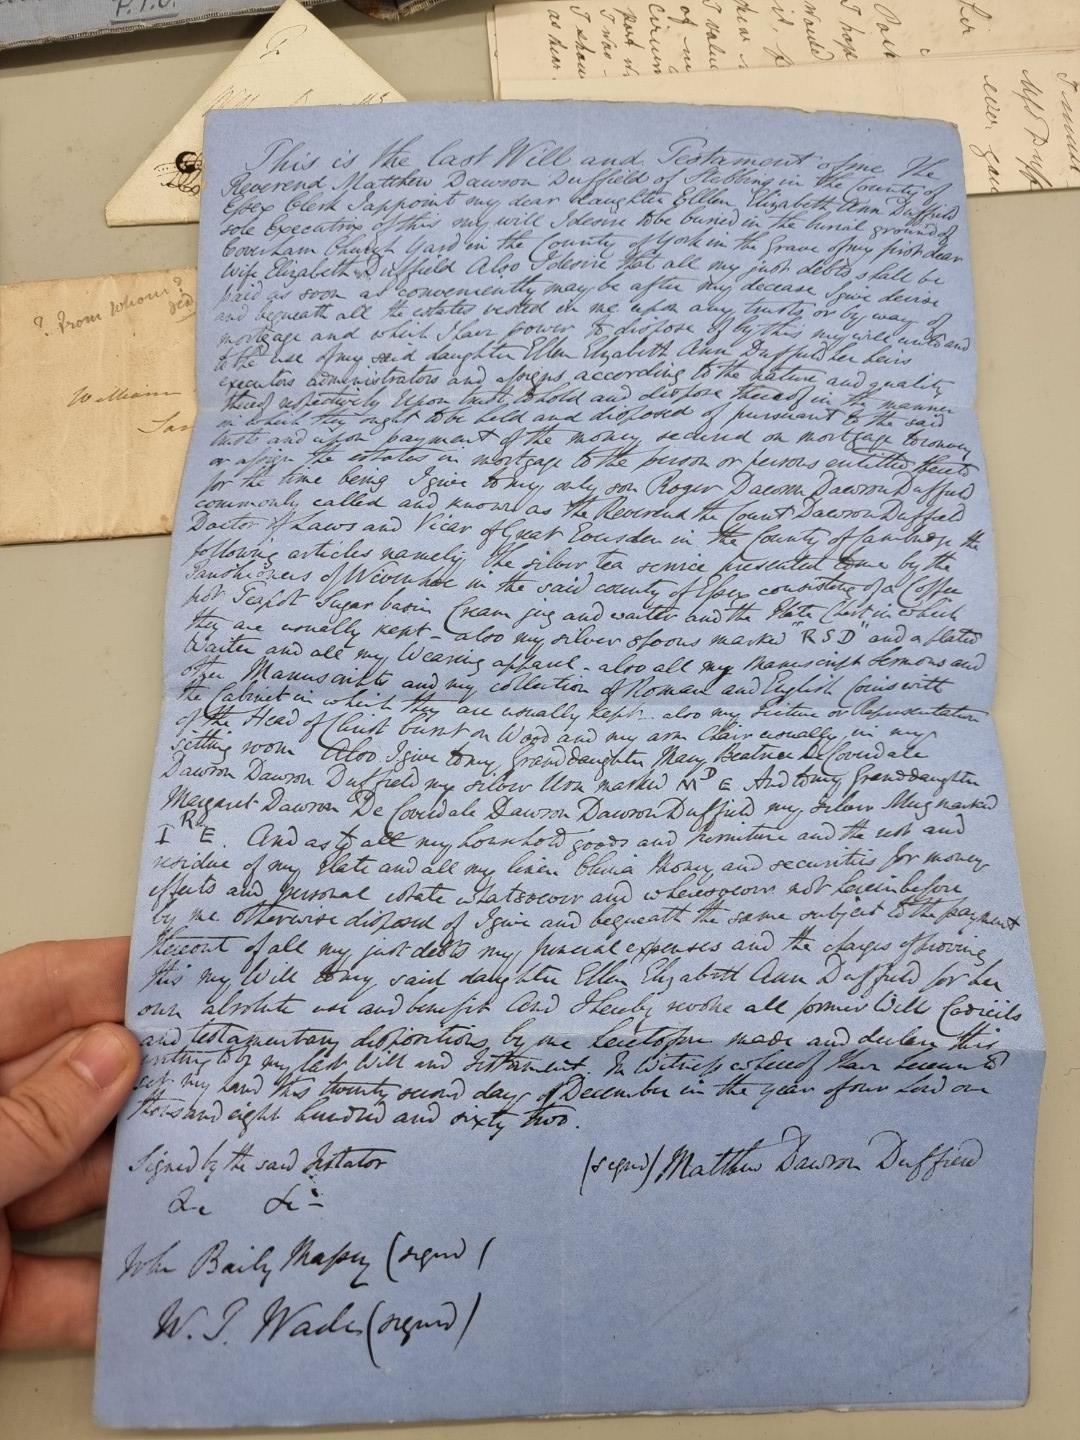 P.T.O.
? From whom?
William
This is the last Will and Testament of me The
Reverend Matthew Dawson Duffield of Stebbing in the County of
Essex Clerk I appoint my dear daughter Ellen Elizabeth Ann Duffield
sole Executrix of this my will I desire to be buried in the burial ground of
Coverham Church Yard in the County of York in the Grave of my first dear
Wife Elizabeth Duffield Also I desire that all my just debts shall be
paid as soon as conveniently may be after my decease I give devise
and bequeath all the estates vested in me upon any trusts or by way of
mortgage and which I have power to dispose of by this my will unto and
to the use of my said daughter Ellen Elizabeth Ann Duffield her heirs
executors administrators and assigns according to the nature and quality
thereof respectively Upon trust to hold and dispose thereof in the manner
in which they ought to be held and disposed of pursuant to the said
trusts and upon payment of the money secured on mortgage to convey
or assign the estates in mortgage to the person or persons entitled thereto
for the time being I give to my only son Roger Dawson Dawson Duffield
commonly called and known as the Reverend the Count Dawson Duffield
Doctor of Laws and Vicar of Great Eversden in the County of Cambridge the
following articles namely The silver tea service presented to me by the
Parishioners of Wivenhoe in the said county of Essex consisting of a Coffee
pot Teapot Sugar basin Cream jug and waiter and the Plate Chest in which
they are usually kept - also my silver spoons marked "R S D" and a plated
Waiter and all my Wearing apparel - also all my Manuscript Sermons and
other Manuscripts and my collection of Roman and English Coins with
the Cabinet in which they are usually kept - also my Picture or Representation
of the Head of Christ burnt on Wood and my arm Chair usually in my
sitting room Also I give to my Granddaughter Mary Beatrice De Coverdale
Dawson Dawson Duffield my silver Urn marked M D E And to my Granddaughter
Margaret Dawson De Coverdale Dawson Dawson Duffield my silver Mug marked
I E. And as to all my household goods and furniture and the rest and
residue of my Plate and all my linen China Money and securities for money
effects and personal estate whatsoever and wheresoever not hereinbefore
by me otherwise disposed of I give and bequeath the same subject to the payment
thereout of all my just debts my funeral expenses and the charges of proving
this my Will to my said daughter Ellen Elizabeth Ann Duffield for her
own absolute use and benefit And I hereby revoke all former Wills Codicils
and testamentary dispositions by me heretofore made and declare this
writing to be my last Will and Testament. In Witness whereof I have hereunto
set my hand this twenty second day of December in the year of our Lord one
thousand eight hundred and sixty two.
Signed by the said Testator
&c &c
(signed) Matthew Dawson Duffield
John Baily Massey (signed)
W. T. Wade (signed)